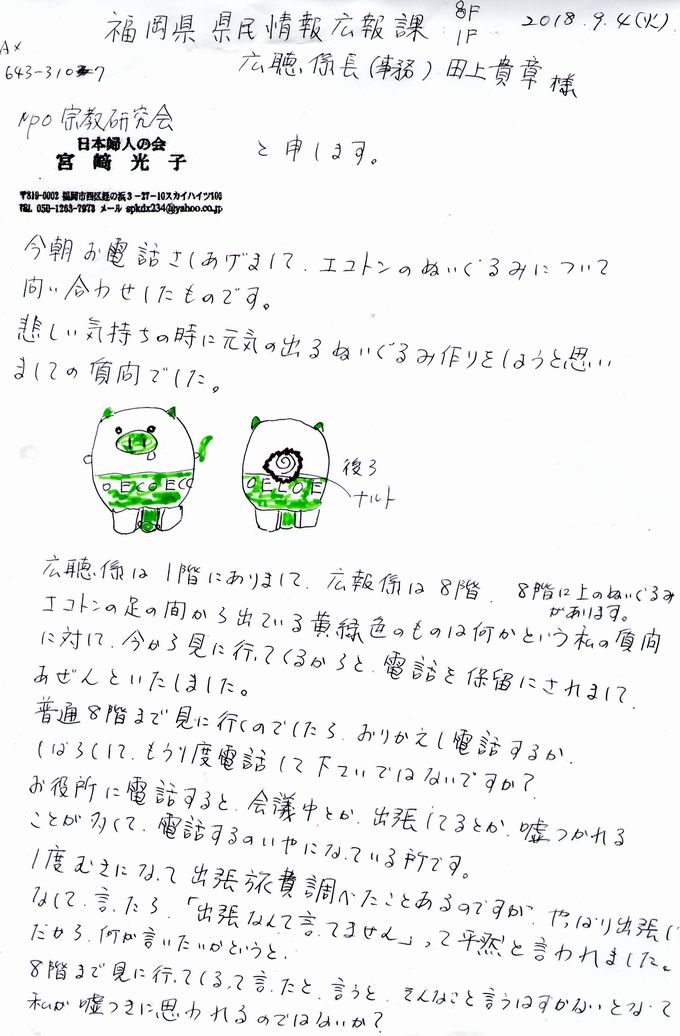 福岡県県民情報広報課 8F 1F 2018.9.4(火)
AX
643-3107
広聴係長(事務)田上貴章様
NPO宗教研究会
日本婦人の会
宮﨑光子
と申します。
〒819-0002 福岡市西区姪の浜3-27-10スカイハイツ106
TEL 050-1263-7973 メール spkdx234@yahoo.co.jp
今朝お電話さしあげまして、エコトンのぬいぐるみについて
問い合わせしたものです。
悲しい気持ちの時に元気の出るぬいぐるみ作りをしようと思い
ましての質問でした。
ECO ECO
後ろ
ナルト
広聴係は1階にありまして、広報係は8階、8階に上のぬいぐるみ
があります。
エコトンの足の間から出ている黄緑色のものは何かという私の質問
に対して、今から見に行ってくるからと、電話を保留にされまして、
あぜんといたしました。
普通8階まで見に行くのでしたら、おりかえし電話するか、
しばらくして、もう1度電話して下さいではないですか?
お役所に電話すると、会議中とか、出張してるとか、嘘つかれる
ことが多くて、電話するのいやになっている所です。
1度むきになって出張旅費調べたことあるのですが、やっぱり出張し
なくて、言ったら、「出張なんて言ってません」って平然と言われました。
だから、何が言いたいかというと、
8階まで見に行ってくるって言ったと、言うと、そんなこと言うはずがないとなって
私が嘘つきに思われるのではないか?